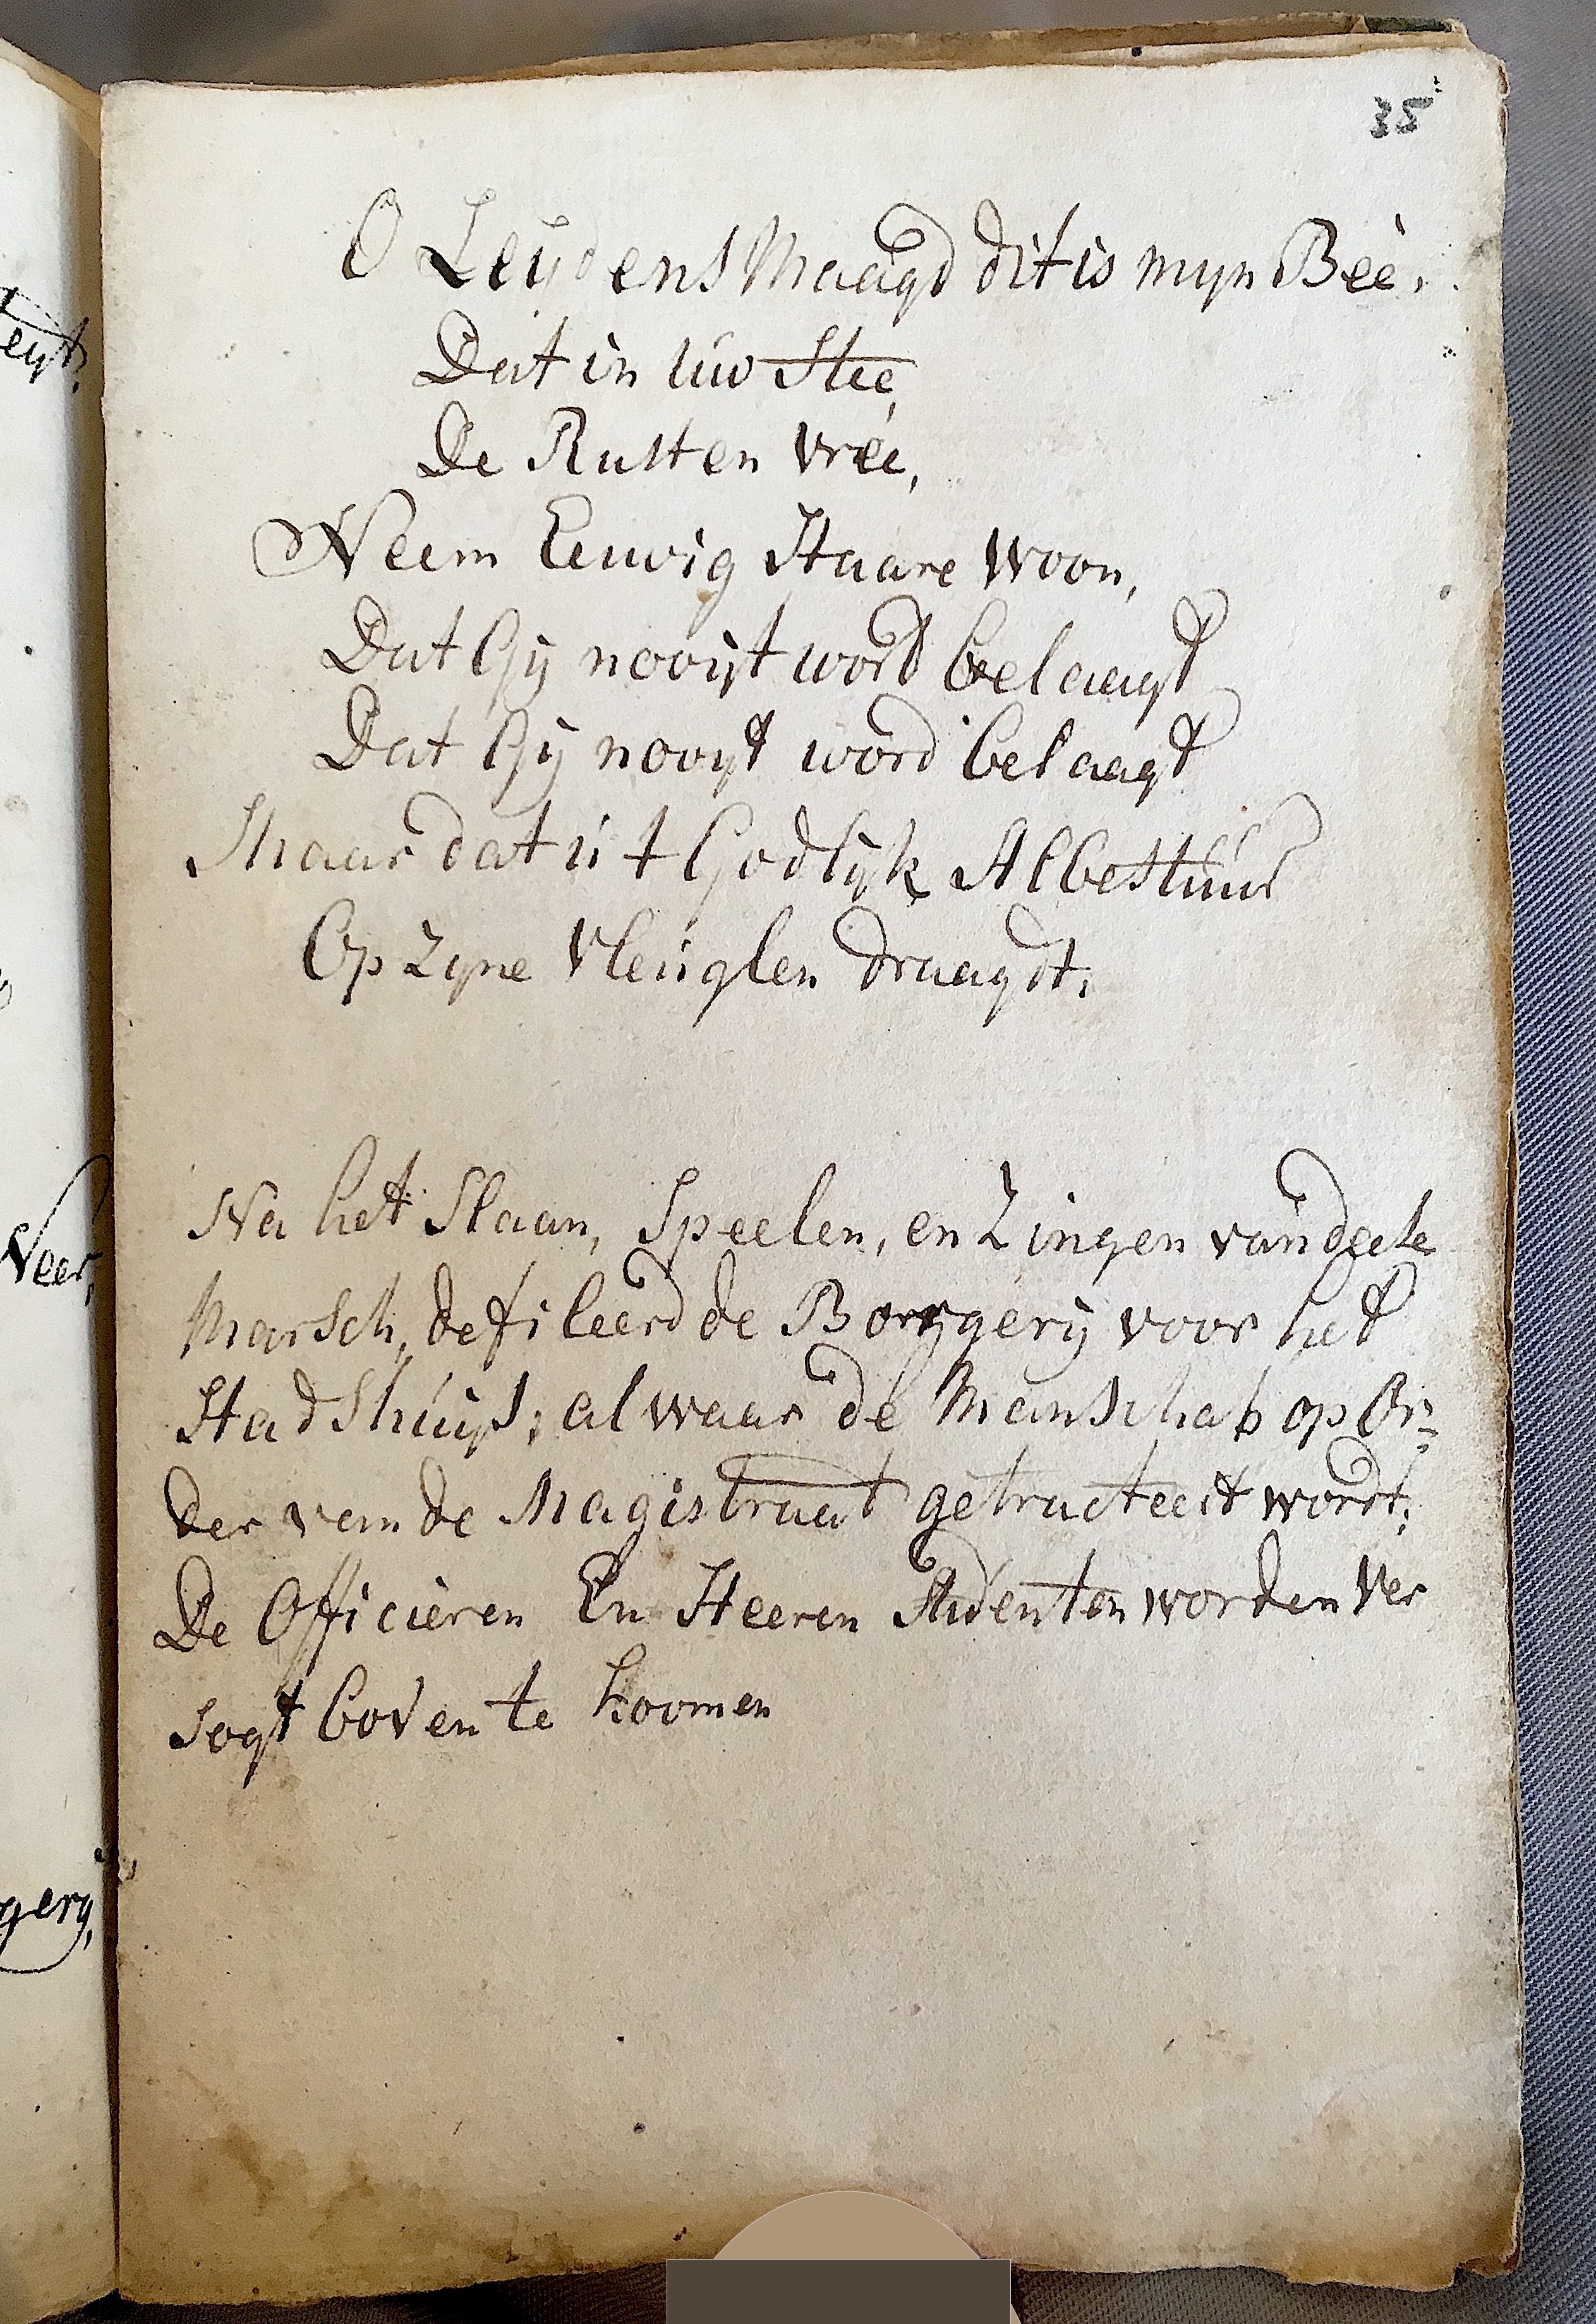 35
O Leydens Maagd dit is myn Beê,
Dat in Uw Stee,
De Rust en vreê,
Neem Eeuwig Haare woon,
Dat Gy nooyt word belaagt
Dat Gy nooyt word belaagt
Maar dat u 't Godlyk Albestuur
Op Zyne vleuglen draagdt,
Na het Slaan, Speelen, en Zingen van deese
Marsch, defileerd de Borgery voor het
Stadshuys, alwaar de Manschap op Or=
der van de Magistraat getracteert wordt,
De Officieren En Heeren Studenten worden Ver
sogt boven te koomen
eyt,
Neer,
gery,